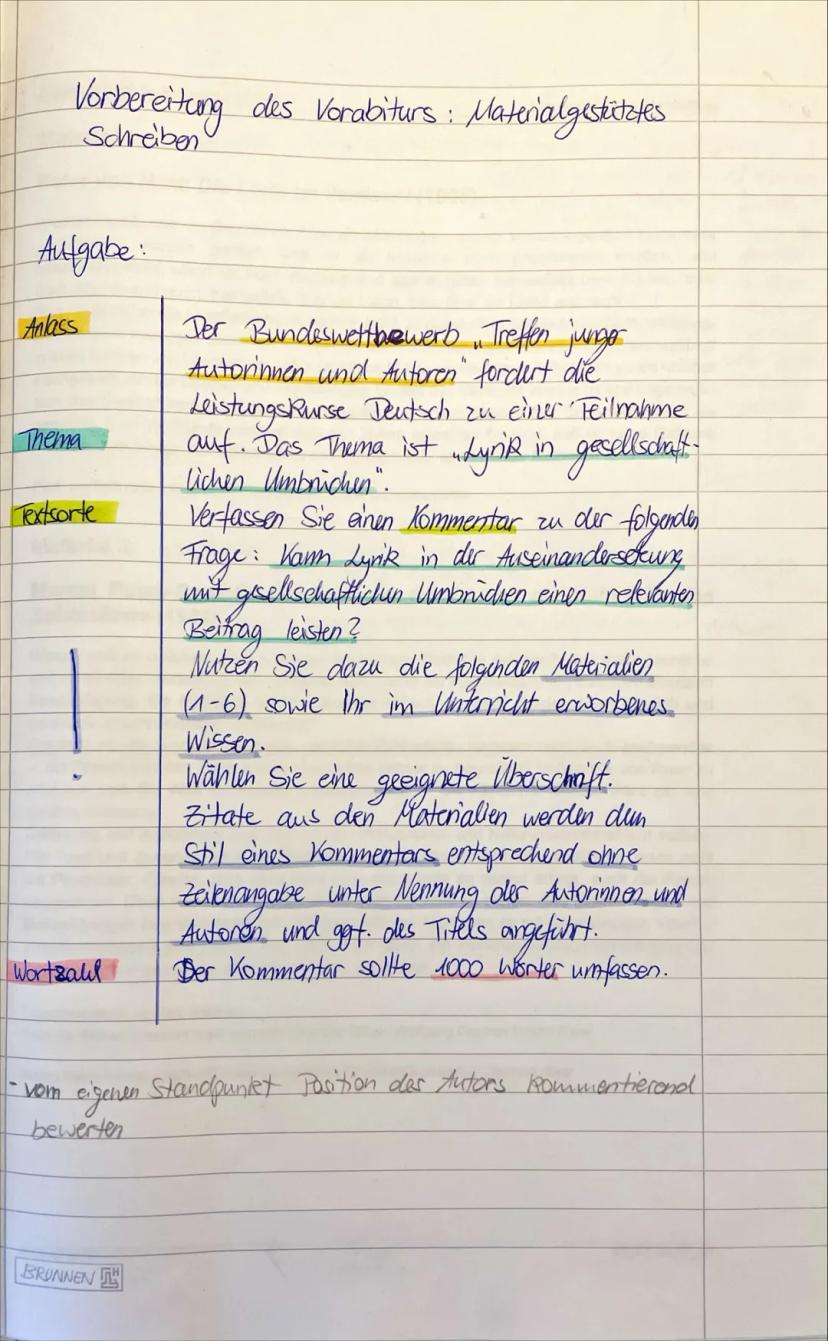 Vorbereitung des Vorabiturs: Materialgestütztes
Schreiben
Aufgabe:
Anlass
Der Bundeswettbewerb „Treffen junge
Autorinnen und Autoren" fordert die
Leistungskurse Deutsch zu einer Teilnahme
Thema
auf. Das Thema ist „Lyrik in gesellschaft-
lichen Umbrüchen".
Textsorte
Verfassen Sie einen Kommentar zu der folgenden
Frage: Kann Lyrik in der Auseinandersetzung
mit gesellschaftlichen Umbrüchen einen relevanten
Beitrag leisten?
!
Nutzen Sie dazu die folgenden Materialien
(1-6) sowie Ihr im Unterricht erworbenes
Wissen.
Wählen Sie eine geeignete Überschrift.
Zitate aus den Materialien werden dem
Stil eines Kommentars entsprechend ohne
Zeilenangabe unter Nennung der Autorinnen und
Autoren und ggf. des Titels angeführt.
Wortzahl
Der Kommentar sollte 1000 Wörter umfassen.
- vom eigenen Standpunkt Position des Autors kommentierend
bewerten
BRUNNEN